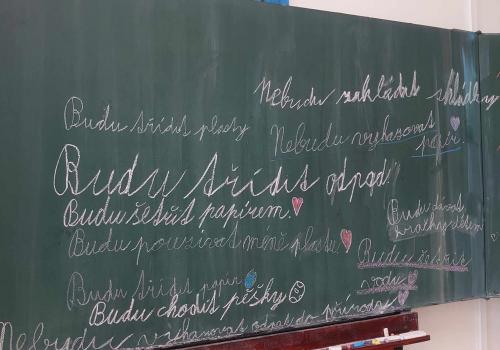 Nebudu zakládat skládky
Budu třídit plasty
Nebudu vyhazovat
papír.
Budu třídit odpad!
Budu šetřit papírem.
Budu dávat
zvířatům
Budu používat méně plastu.
Budu šetřit
vodu
Budu třídit papír
Budu chodit pěšky
Nebudu vyhazovat odpad do přírody